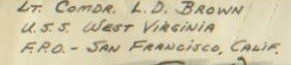 LT. COMDR. L.D. BROWN
U.S.S. WEST VIRGINIA
F.P.O. - SAN FRANCISCO, CALIF.